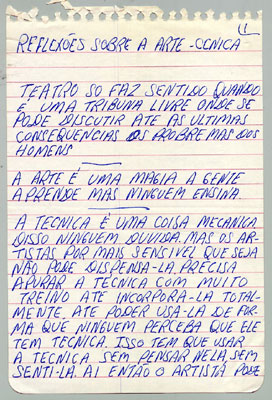 1
REFLEXÕES SOBRE A ARTE-CÊNICA
TEATRO SO FAZ SENTIDO QUANDO
E UMA TRIBUNA LIVRE ONDE SE
PODE DISCUTIR ATE AS ULTIMAS
CONSEQUENCIAS OS PROBREMAS DOS
HOMENS
A ARTE É UMA MAGIA A GENTE
APRENDE MAS NINGUEM ENSINA.
A TECNICA É UMA COISA MECANICA
DISSO NINGUEM DUVIDA. MAS OS AR-
TISTAS POR MAIS SENSIVEL QUE SEJA
NÃO PODE DISPENSA-LA. PRECISA
APURAR A TECNICA COM MUITO
TREINO ATE INCORPORÁ-LA TOTAL-
MENTE, ATE PODER USA-LA DE FOR-
MA QUE NINGUEM PERCEBA QUE ELE
TEM TECNICA. ISSO TEM QUE USAR
A TECNICA SEM PENSAR NELA, SEM
SENTI-LA. AI ENTÃO O ARTISTA PODE